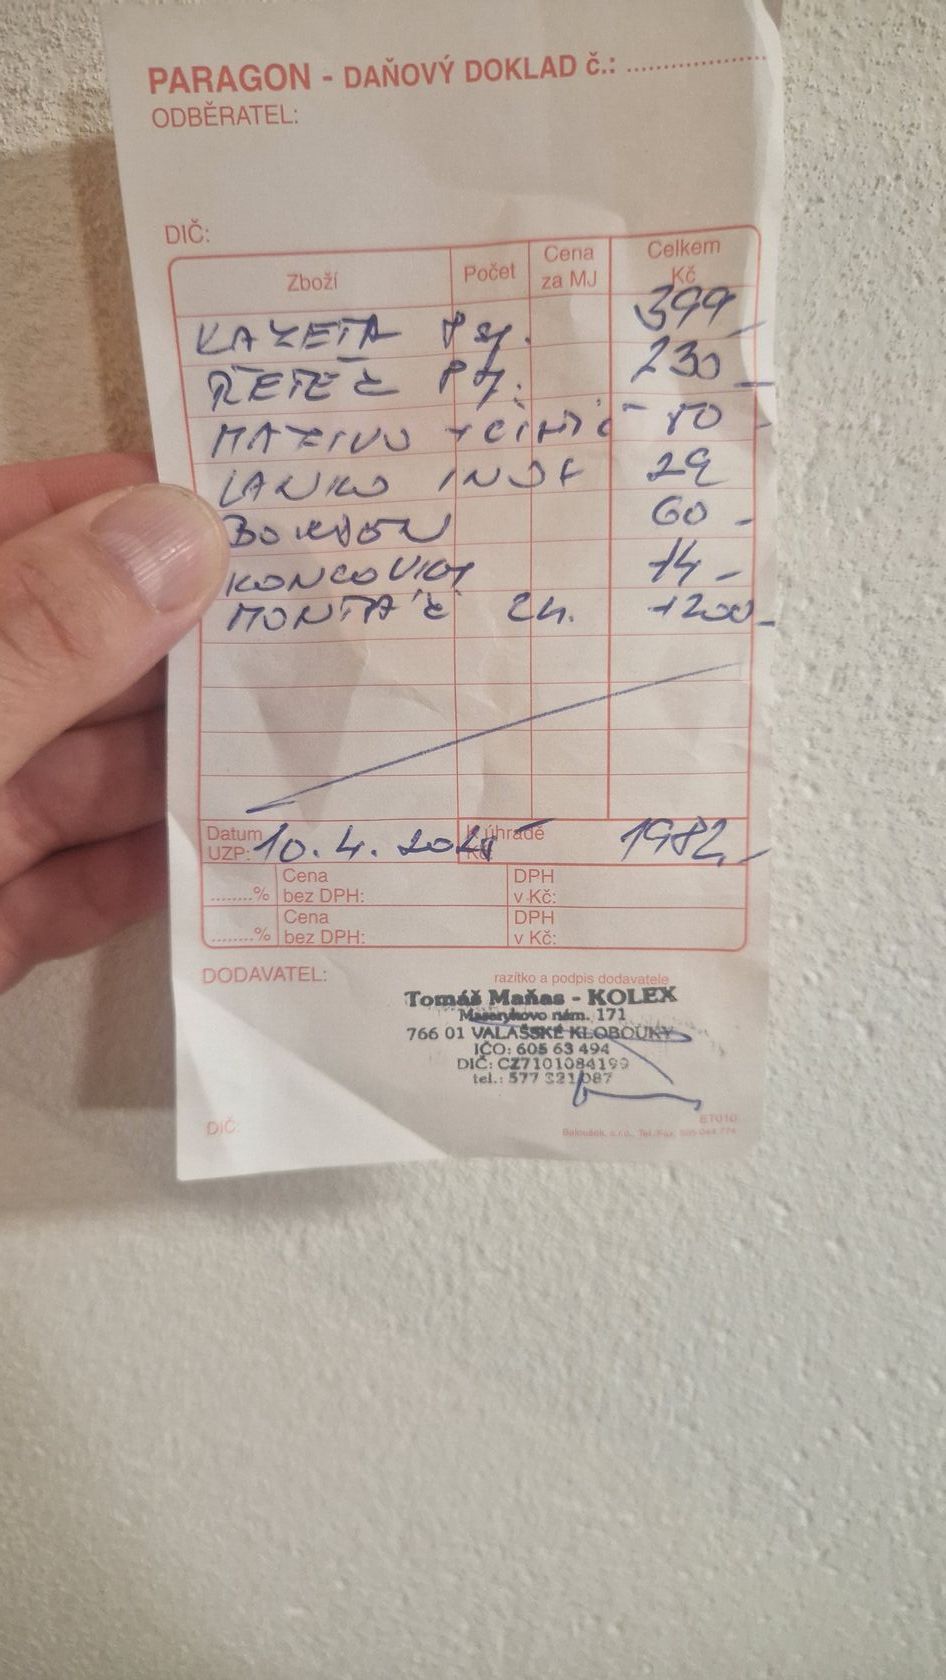 PARAGON - DAŇOVÝ DOKLAD č.: ....................
ODBĚRATEL:
DIČ:
Zboží Počet Cena za MJ Celkem Kč
KAZETA 8 sp. 399,-
ŘETĚZ 230,-
MAZIVO + 50,-
LANKO 29
BOWDEN 60,-
KONCOVKY 14,-
MONTÁŽ 2h. 1200,-
Datum UZP: 10. 4. 2025 K úhradě Kč 1982,-
........% Cena bez DPH: DPH v Kč:
........% Cena bez DPH: DPH v Kč:
DODAVATEL: razítko a podpis dodavatele
Tomáš Maňas - KOLEX
Masarykovo nám. 171
766 01 VALAŠSKÉ KLOBOUKY
IČO: 605 63 494
DIČ: CZ7101084199
tel.: 577 321 087
DIČ: ET010
Baloušek, s.r.o., Tel./Fax: